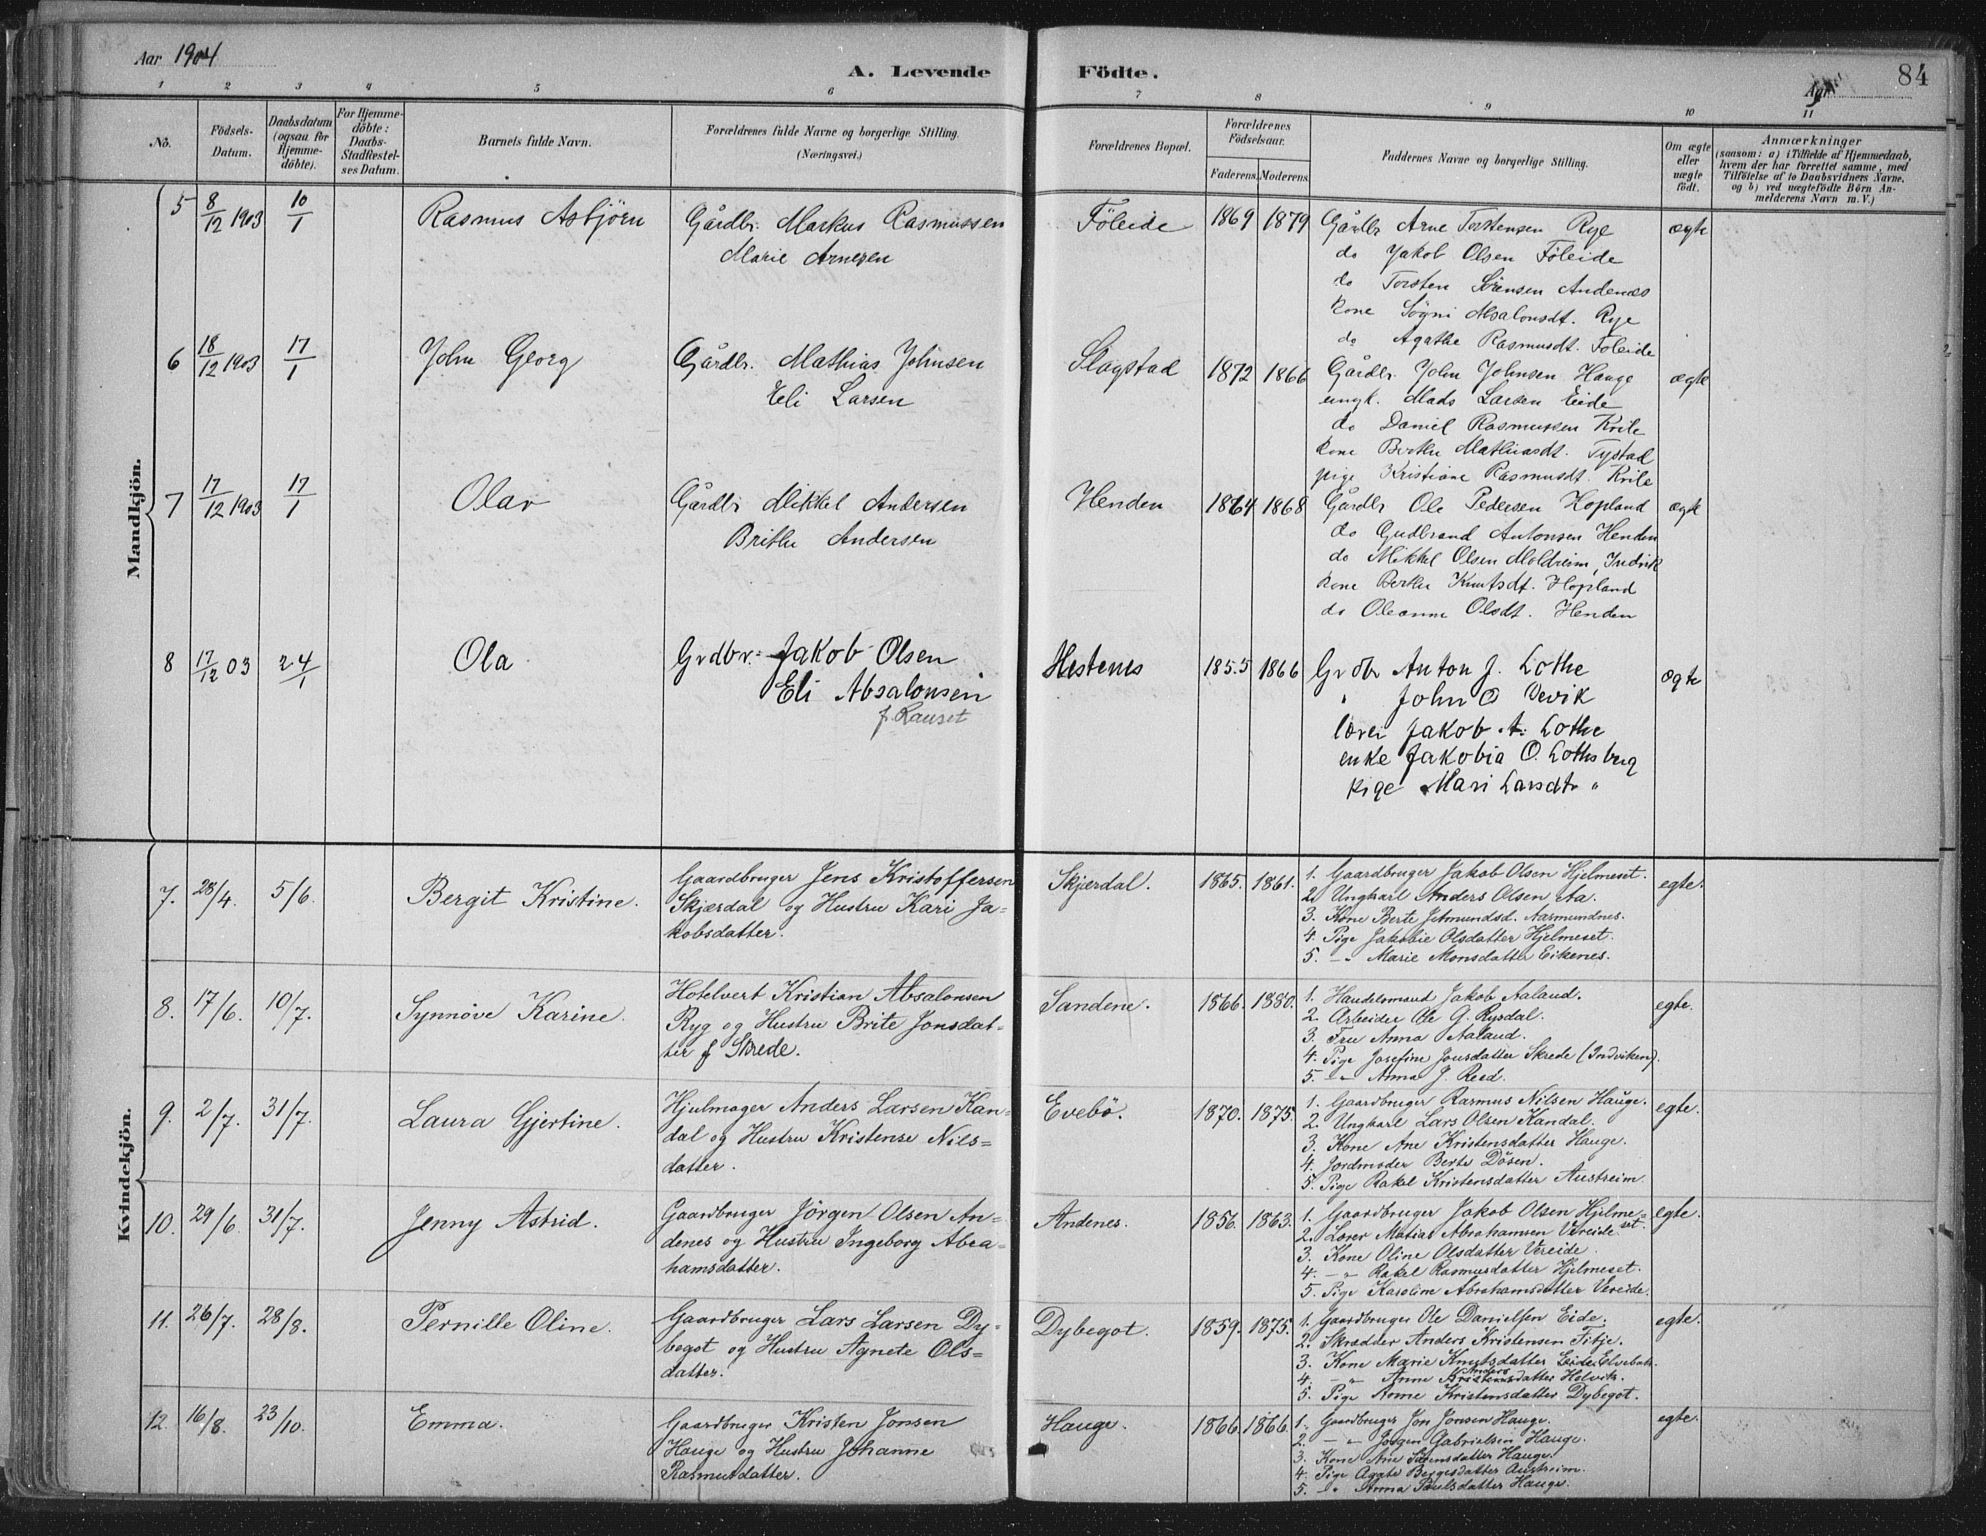 Aar 1904
A. Levende Födte.
Aar
84
1 2 3 4 5 6 7 8 9 10 11
No.
Födsels-Datum.
Daabsdatum (ogsaa for Hjemme-döbte).
For Hjemme-döbte: Daabs-Stadfæstel-ses Datum.
Barnets fulde Navn.
Forældrenes fulde Navne og borgerlige Stilling. (Næringsvei.)
Forældrenes Bopæl.
Forældrenes Födselsaar.
Faderens. Moderens.
Faddernes Navne og borgerlige Stilling.
Om ægte eller uægte födt.
Anmærkninger
(saasom: a) i Tilfælde af Hjemmedaab, hvem der har forrettet samme, med Tilföielse af to Daabsvidners Navne, og b) ved uægtefödte Börn An-melderens Navn m. V.)
Mandkjön.
5 8/12 1903 10/1 Rasmus Asbjörn Gårdbr. Markus Rasmussen Föleide 1869 1879 Gårdbr Arne Torstensen Rye ægte
Marie Arnesen do Jakob Olsen Föleide
do Torsten Sörensen Andenæs
kone Sögni Absalonsdt. Rye
do Agathe Rasmusdt. Föleide
6 18/12 1903 17/1 John Georg Gårdbr. Mathias Johnsen Slagstad 1872 1866 Gårdbr. John Johnsen Hauge ægte
Eli Larsen ungk. Mads Larsen Eide
do Daniel Rasmussen Krile
kone Berthe Mathiasdt. Tystad
pige Kristiane Rasmusdt. Krile
7 17/12 1903 17/1 Olav Gårdbr Mikkel Andersen Henden 1864 1868 Gårdbr. Ole Pedersen Hopland ægte
Brithe Andersen do Gudbrand Antonsen Henden
do Mikkel Olsen Moldreim, Indvik
kone Berthe Knutsdt. Hopland
do Oleanne Olsdt. Henden
8 17/12 03 24/1 Ola Grdbr. Jakob Olsen Hestenes 1855 1866 Grdbr Anton J. Lothe ægte
Eli Absalonsen " John O Vevik
f. Rauset lærer Jakob A. Lothe
enke Jakobia O. Lothsberg
pige Mari Larsdtr "
Kvindekjön.
7. 28/4. 5/6. Bergit Kristine. Gaardbruger Jens Kristoffersen Skjerdal. 1865. 1861. 1. Gaardbruger Jakob Olsen Hjelmeset. egte.
Skjærdal og Hustru Kari Ja- 2. Ungkarl Anders Olsen Aa.
kobsdatter. 3. Kone Berte Jetmundsd. Aasmundnes.
4. Pige Jakobie Olsdatter Hjelmeset.
5. -"- Marie Monsdatter Eikenes.
8. 17/6. 10/7. Synnöve Karine. Hotelvert Kristian Absalonsen Sandene. 1866. 1880. 1. Handelsmand Jakob Aaland. egte.
Ryg og Hustru Brite Jonsdat- 2. Arbeider Ole G. Rysdal.
ter f Skrede. 3. Fru Anna Aaland.
4. Pige Josefine Jonsdatter Skrede (Indviken).
5. -"- Anna J. Reed.
9. 2/7. 31/7. Laura Gjertine. Hjulmager Anders Larsen Kan- Evebö. 1870. 1875. 1. Gaardbruger Rasmus Nilsen Hauge. egte.
dal og Hustru Kristense Nils= 2. Ungkarl Lars Olsen Kandal.
datter. 3. Kone Ane Kristensdatter Hauge.
4. Jordmoder Berte Dösen.
5. Pige Rakel Kristensdatter Austreim.
10. 29/6. 31/7. Jenny Astrid. Gaardbruger Jörgen Olsen An- Andenes. 1856. 1863. 1. Gaardbruger Jakob Olsen Hjelme= egte.
denes og Hustru Ingeborg Abra= 2. Lærer Matias Abrahamsen Vereide. set.
hamsdatter. 3. Kone Oline Olsdatter Vereide.
4. -"- Rakel Rasmusdatter Hjelmeset.
5. Pige Karoline Abrahamsdatter Vereide.
11. 26/7. 28/8. Pernille Oline. Gaardbruger Lars Larsen Dy- Dybegot. 1859. 1875. 1. Gaardbruger Ole Danielsen Eide. egte.
begot og Hustru Agnete Ols= 2. Skrædder Anders Kristensen Fitje.
datter. 3. Kone Marie Knutsdatter Eide Elvebak.
4. -"- Anne Andersdatter Helvik.
5. Pige Anne Kristensdatter Dybegot.
12. 16/8. 23/10. Emma. Gaardbruger Kristen Jonsen Hauge. 1866. 1866. 1. Gaardbruger Jon Jonsen Hauge. egte.
Hauge og Hustru Johanne 2. -"- Jörgen Gabrielsen Hauge.
Rasmusdatter. 3. Kone Ane Simensdatter Hauge.
4. Pige Agate Beggesdatter Austreim.
5. -"- Anna Paulsdatter Hauge.